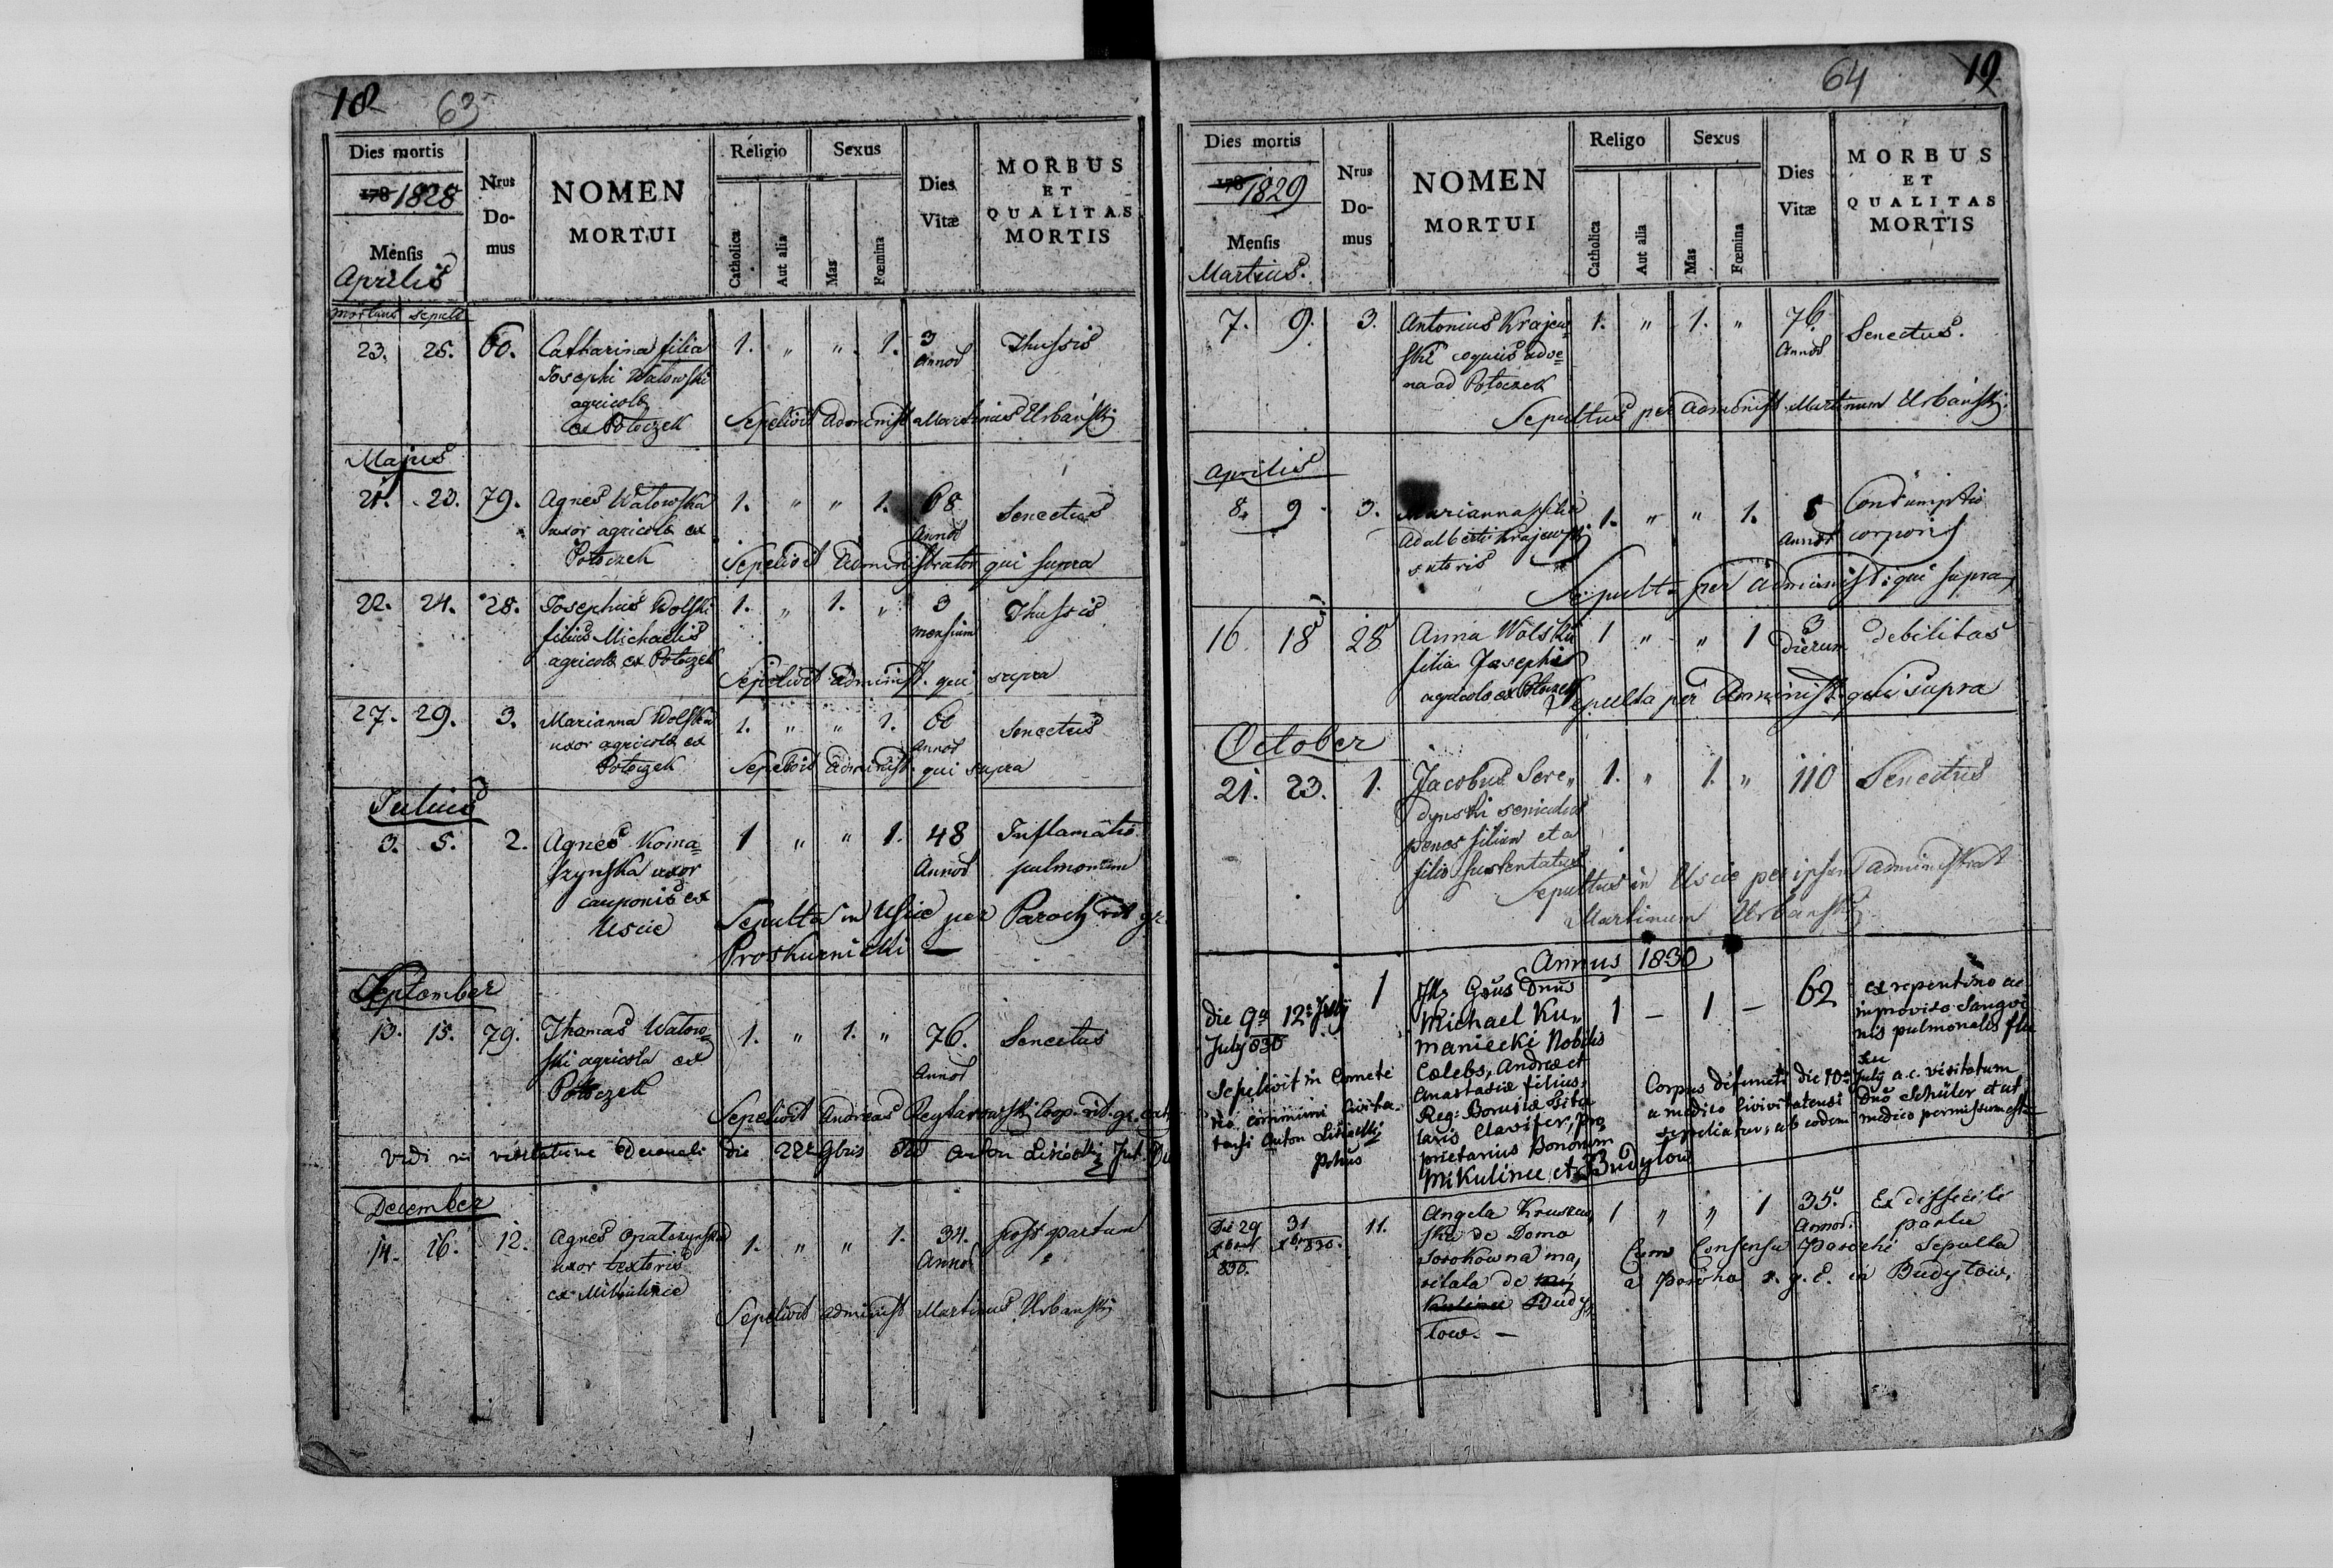 18 63
Dies mortis
178 1828
Mensis
Aprilis
Nrus Do-mus
NOMEN
MORTUI
Religio
Catholica
Aut alia
Sexus
Mas
Fœmina
Dies
Vitæ
MORBUS
ET
QUALITAS
MORTIS
mortuus sepult
23. 25. 60. Catharina filia 1. " " 1. 3 Thussis
Josephi Watowski Annor
agricolæ
ex Potoczek Sepelivit Administ Martinus Urbański
Majus
21. 23. 79. Agnes Watowska 1. " " 1. 68 Senectus
uxor agricolæ ex Annor
Potoczek Sepelivit Administrator qui supra
22. 24. 28. Josephus Wolski 1. " 1. " 3 Thussis
filius Michaelis mensium
agricolæ ex Potoczek Sepelivit administ. qui supra
27. 29. 3. Marianna Wolska 1. " " 1. 60 Senectus
uxor agricolæ ex Annor
Potoczek Sepelivit Administ. qui supra
Julius
3. 5. 2. Agnes Koina= 1 " " 1. 48 Inflamatio
szynska uxor Annor pulmonum
cauponis ex
Uscie Sepulta in Uscie per Paroch rit gr.
Proskurnicki —
September
13. 15. 79. Thomas Watow= 1. " 1. " 76. Senectus
ski agricola ex Annor
Potoczek
Sepelivit Andreas Reytarowski Coop. rit. gr. cat
Vidi in visitatione Decanali die 22 9bris 828 Anton Lisiecki
December
14. 16. 12. Agnes Opatozynska 1. " " 1. 34. post partum
uxor textoris Annor
ex Mikulince
Sepelivit administ Martinus Urbański
64 19
Dies mortis
178 1829
Mensis
Martius.
Nrus Do-mus
NOMEN
MORTUI
Religo
Catholica
Aut alia
Sexus
Mas
Fœmina
Dies
Vitæ
MORBUS
ET
QUALITAS
MORTIS
7. 9. 3. Antonius Krajew= 1. " 1. " 76 Senectus.
ski coquus adve= Annor
na ad Potoczek
Sepultus per Administ. Martinum Urbański.
Aprilis
8. 9. 3. Marianna filia 1. " " 1. 5 Consumptio
Adalberti Krajewski Annor corporis
sutoris
Sepulta per administ. qui supra
16 18 28 Anna Wolska 1 " " 1 3 debilitas
filia Josephi dierum
agricolæ ex Potoczek Sepulta per Administ. qui supra
October
21. 23. 1. Jacobus Sere" 1. " 1. " 110 Senectus
dynski seniculus
penes filium et a
filio sustentatus
Sepultus in Uscie per ipsum administrat
Martinum Urbański
Annus 1830
die 9a 12a July 1 Gsus Dnus 1 — 1 — 62 ex repentino ac
July 830 Michael Ku" improviso Sangvi
maniecki Nobilis nis pulmonalis flu
Cælebs, Andreæ et xu
Anastasiæ filius,
Sepelivit in Cœmete
rio communi Civita-
tensi Anton Lisiecki
Reg: Borusiæ
Claviger, pro,
prietarius Bonorum
Mikulince et Budylow
Corpus defuncti die 10a July a.c. visitatum
a medico Civivitatensi Dno Schüler et ut
sepeliatur, ab eodem medico permissum est
Die 29 31 11. Angela Kruszew, 1 " " 1 35. Ex difficili
Xbris Xbris 830. ska de Domo Annor. partu
830. Sorokowna ma,
ritata de Mi,
kulince Budy,
low. —
Cum Consensu Parochi Sepulta
a Parocho r. g. c. in Budylow.